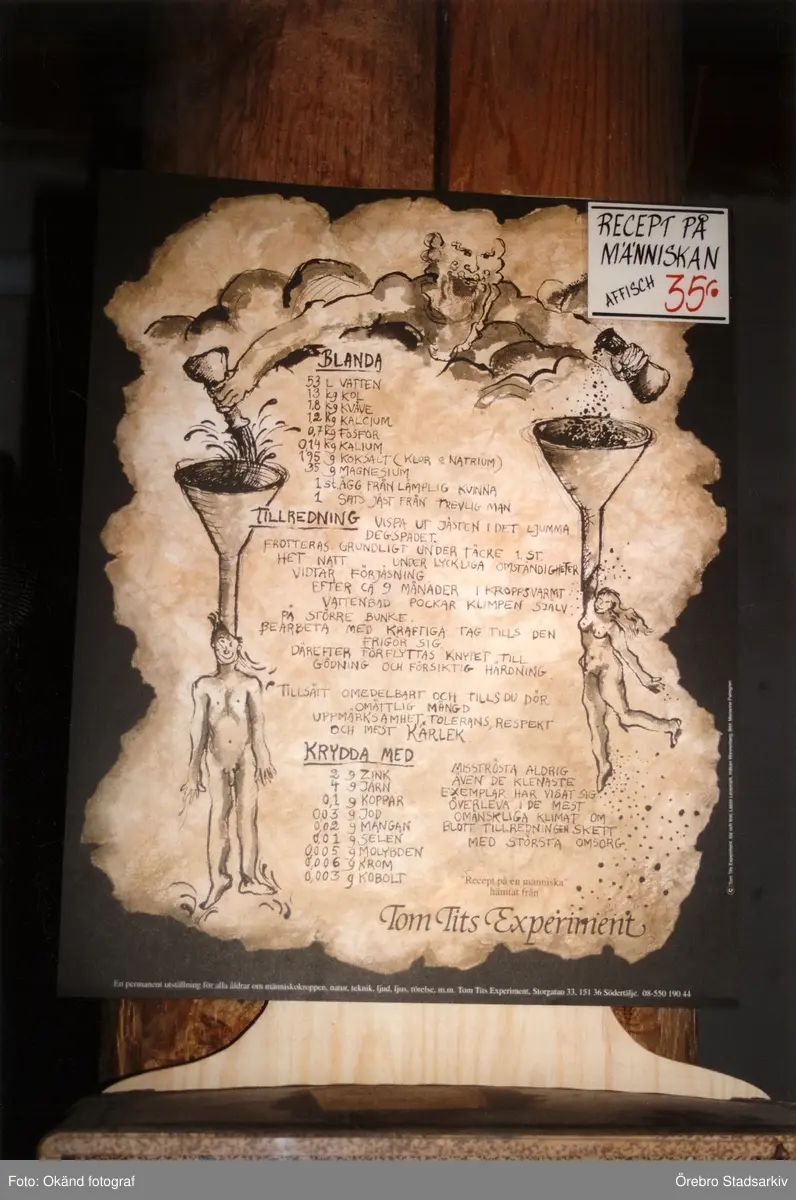 RECEPT PÅ
MÄNNISKAN
AFFISCH 35:-
BLANDA
53 L VATTEN
13 kg KOL
1,8 kg KVÄVE
1,2 kg KALCIUM
0,7 kg FOSFOR
0,14 kg KALIUM
195 g KOKSALT (KLOR & NATRIUM)
35 g MAGNESIUM
1 st. ÄGG FRÅN LÄMPLIG KVINNA
1 SATS JÄST FRÅN TREVLIG MAN
TILLREDNING VISPA UT JÄSTEN I DET LJUMMA
DEGSPADET.
FROTTERAS GRUNDLIGT UNDER TÄCKE 1. ST.
HET NATT UNDER LYCKLIGA OMSTÄNDIGHETER
VIDTAR FÖRJÄSNING
EFTER CA 9 MÅNADER I KROPPSVARMT
VATTENBAD POCKAR KLIMPEN SJÄLV
PÅ STÖRRE BUNKE.
BEARBETA MED KRAFTIGA TAG TILLS DEN
FRIGÖR SIG
DÄREFTER FÖRFLYTTAS KNYTET TILL
GÖDNING OCH FÖRSIKTIG HÄRDNING
TILLSÄTT OMEDELBART OCH TILLS DU DÖR
OMÅTTLIG MÄNGD
UPPMÄRKSAMHET, TOLERANS, RESPEKT
OCH MEST KÄRLEK
KRYDDA MED
2 g ZINK
4 g JÄRN
0,1 g KOPPAR
0,03 g JOD
0,02 g MANGAN
0,01 g SELEN
0,005 g MOLYBDEN
0,006 g KROM
0,003 g KOBOLT
MISSTRÖSTA ALDRIG
ÄVEN DE KLENASTE
EXEMPLAR HAR VISAT SIG
ÖVERLEVA I DE MEST
OMÄNSKLIGA KLIMAT OM
BLOTT TILLREDNINGEN SKETT
MED STÖRSTA OMSORG
"Recept på en människa"
hämtat från
Tom Tits Experiment
En permanent utställning för alla åldrar om människokroppen, natur, teknik, ljud, ljus, rörelse, m.m. Tom Tits Experiment, Storgatan 33, 151 36 Södertälje. 08-550 190 44
© Tom Tits Experiment
Foto: Okänd fotograf
Örebro Stadsarkiv